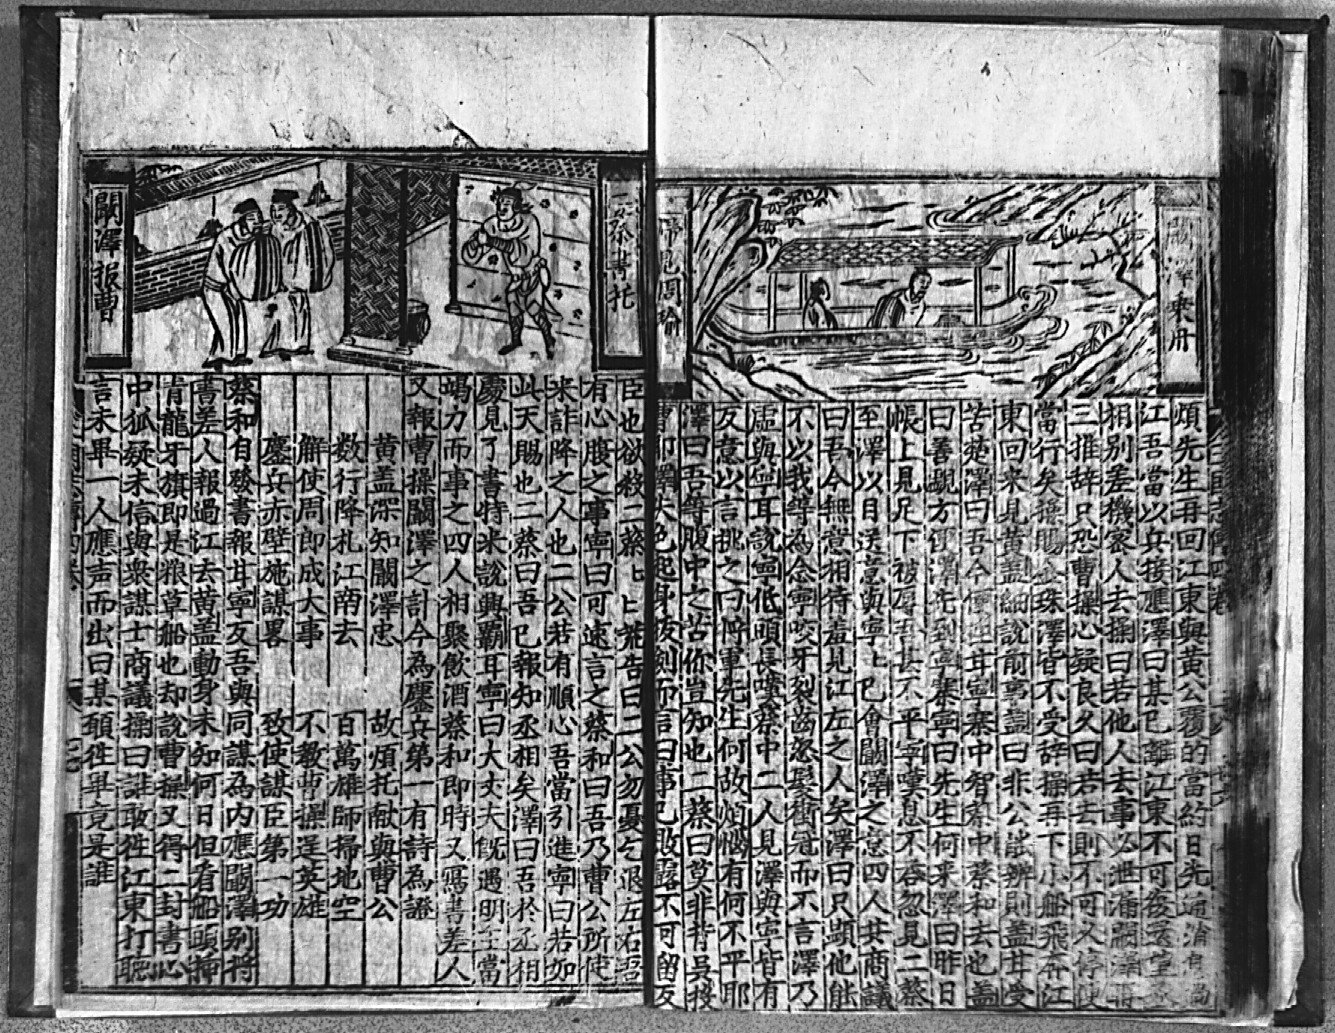 闞澤乘舟
歸見周瑜
煩先生再回江東與黃公覆的當約日先通消息
江吾當以兵接應澤曰某已離江東不可復還望丞
相別差機密人去操曰若他人去事必泄漏闞澤再
三推辞只恐曹操心疑良久曰若去則不可久停便
當行矣操賜金珠澤皆不受辞操再下小船飛奔江
東回來見黃盖細說前事盖曰非公能辨則盖甘受
苦楚澤曰吾今便往甘寧寨中智蔡中蔡和去也盖
曰善覷方便澤先到寧寨寧曰先生何來澤曰昨日
帳上見足下被辱吾甚不平寧嘆息不荅忽見二蔡
至澤以目送意與寧乚已會闞澤之意四人共商議
曰吾今無意相待羞見江左之人矣澤曰只顯他能
不以我等為念寧咬牙裂齒怒髮衝冠而不言澤乃
虛與寧耳說寧低頭長嘆蔡中二人見澤與寧皆有
反意以言挑之曰將軍先生何故煩惱有何不平耶
澤曰吾等腹中之苦你豈知也二蔡曰莫非背吳投
曹耶澤大色起身拔劍而言曰事已敗露不可留反
二蔡書托
闞澤報曹
臣也欲殺二蔡乚乚荒告曰二公勿憂乞退左右吾
有心腹之事寧曰可速言之蔡和曰吾乃曹公所使
來詐降之人也二公若有順心吾當引進寧曰若如
此天賜也二蔡曰吾已報知丞相矣澤曰吾於丞相
處見了書特來說興霸耳寧曰大丈夫既遇明主當
竭力而事之四人相聚飲酒蔡和即時又寫書差人
又報曹操闞澤之計今為鏖兵第一有詩為證
黃盖深知闞澤忠　故煩托献與曹公
数行降札江南去　百萬雄師掃地空
解使周郎成大事　不教曹操逞英雄
鏖兵赤壁施謀畧　致使謀臣第一功
蔡和自發書報甘寧反吾與同謀為内應闞澤別將
書差人報過江去黃盖動身未知何日但看船頭插
青龍牙旗即是粮草船也却說曹操又得二封書心
中狐疑未信與衆謀士商議操曰誰敢徃江東打聽
言未畢一人應声而出曰某願徃畢竟是誰